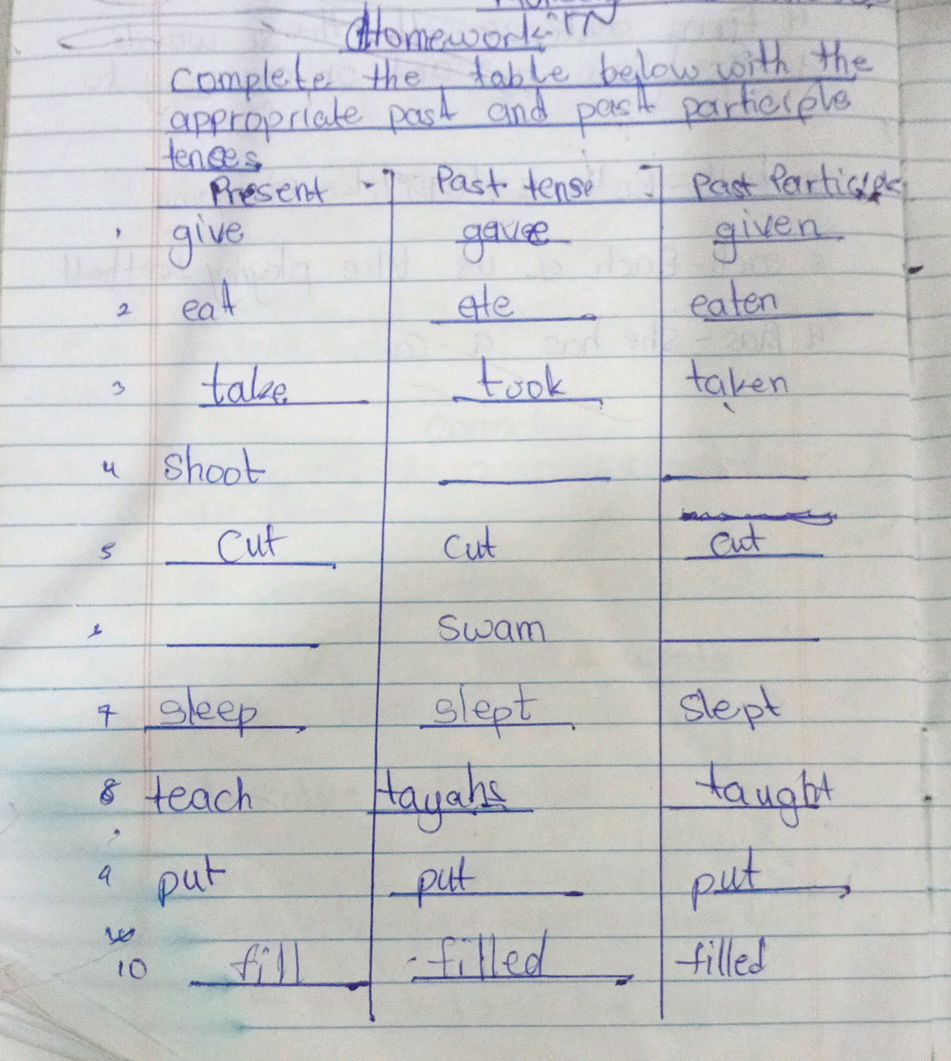 Homework:-
Complete the table below with the
appropriate past and past participle
tences
Present Past tense Past Participle
1 give gave given
2 eat ate eaten
3 take took taken
4 shoot
5 cut cut cut
6 swam
7 sleep slept slept
8 teach tayahs taught
9 put put put
10 fill filled filled